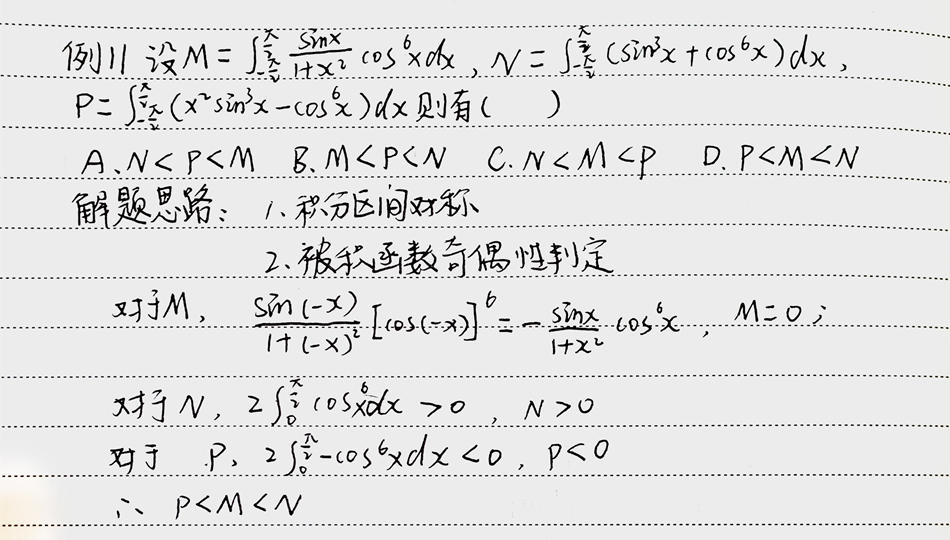 例11 设M = ∫_{-π/2}^{π/2} \frac{sinx}{1+x²} cos⁶x dx , N = ∫_{-π/2}^{π/2} (sin³x + cos⁶x) dx ,
P = ∫_{-π/2}^{π/2} (x² sin³x - cos⁶x) dx 则有( )
A. N < P < M B. M < P < N C. N < M < P D. P < M < N
解题思路: 1. 积分区间对称
2. 被积函数奇偶性判定
对于M, \frac{sin(-x)}{1+(-x)²} [cos(-x)]⁶ = - \frac{sinx}{1+x²} cos⁶x , M = 0 ;
对于N, 2∫_0^{π/2} cos⁶x dx > 0 , N > 0
对于 P, 2∫_0^{π/2} -cos⁶x dx < 0 , P < 0
∴ P < M < N